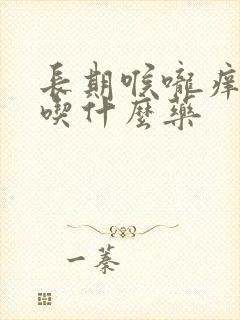 長期喉嚨痒
喫什麼藥
一蓁